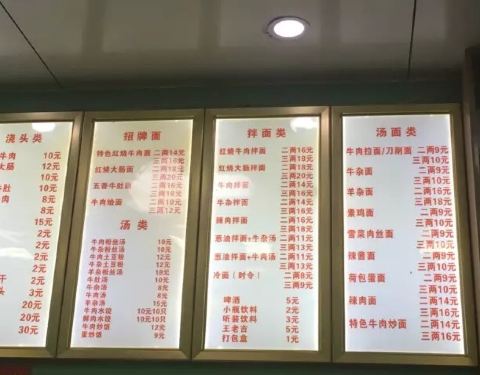 浇头类
牛肉 10元
大肠 12元
10元
牛肚 10元
肉 8元
8元
15元
2元
2元
2元
2元
干 2元
3元
20元
30元
招牌面
特色红烧牛肉面 二两14元
三两16元
红烧大肠面 二两18元
三两20元
五香牛肚面 二两16元
三两18元
牛肉烩面 二两10元
三两12元
汤类
牛肉粉丝汤 10元
牛杂粉丝汤 12元
牛肉土豆粉 12元
牛杂土豆粉 12元
羊杂粉丝汤 18元
牛肚汤 10元
牛杂汤 8元
牛肉汤 8元
羊杂汤 15元
牛肉水饺 10元10只
鲜肉水饺 10元10只
牛肉炒饭 12元
蛋炒饭 9元
拌面类
红烧牛肉拌面 二两16元
三两18元
红烧大肠拌面 二两18元
三两20元
牛肉拌面 二两14元
三两16元
牛杂拌面 二两14元
三两16元
辣肉拌面 二两14元
三两16元
葱油拌面+牛杂汤 二两11元
三两13元
葱油拌面+牛肉汤 二两11元
三两13元
冷面(时令) 二两8元
三两9元
啤酒 5元
小瓶饮料 5元
听装饮料 3元
王老吉 5元
打包盒 1元
汤面类
牛肉拉面/刀削面 二两9元
三两10元
牛杂面 二两9元
三两10元
羊杂面 二两16元
三两18元
素鸡面 二两9元
三两10元
雪菜肉丝面 二两9元
三两10元
辣酱面 二两9元
三两10元
荷包蛋面 二两9元
三两10元
辣肉面 二两14元
三两16元
特色牛肉炒面 二两14元
三两16元